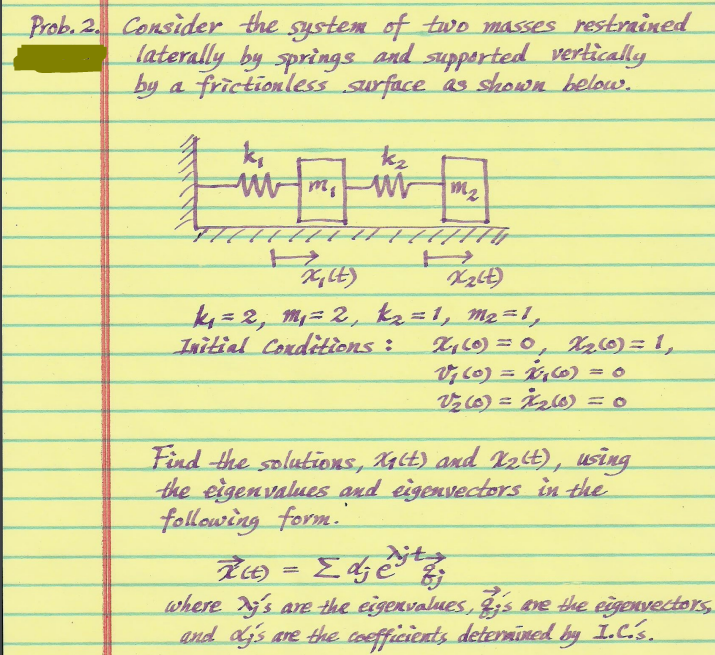 Prob. 2. Consider the system of two masses restrained
laterally by springs and supported vertically
by a frictionless surface as shown below.
k₁ k₂
m₁ m₂
x₁(t) x₂(t)
k₁ = 2, m₁ = 2, k₂ = 1, m₂ = 1,
Initial Conditions : x₁(0) = 0, x₂(0) = 1,
v₁(0) = ẋ₁(0) = 0
v₂(0) = ẋ₂(0) = 0
Find the solutions, x₁(t) and x₂(t), using
the eigenvalues and eigenvectors in the
following form.
x⃗(t) = Σ αⱼ e^λⱼt q⃗ⱼ
where λⱼ's are the eigenvalues, q⃗ⱼ's are the eigenvectors,
and αⱼ's are the coefficients determined by I.C.'s.